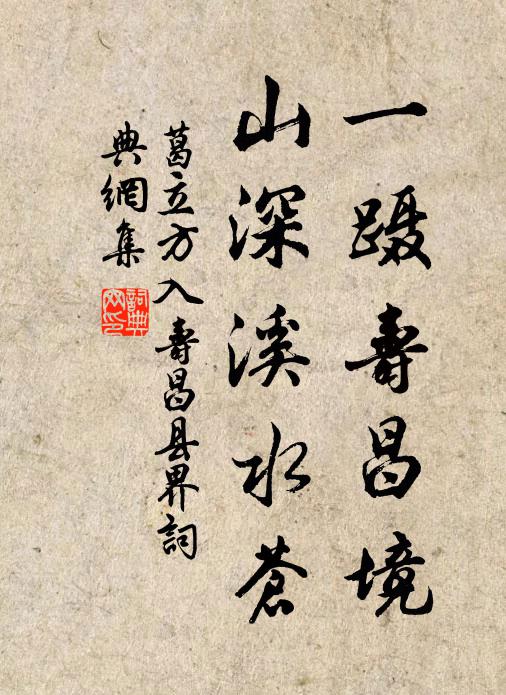 一蹑壽昌境
山深溪水蒼
葛立方入壽昌县界詞
典網集
詞典
网印